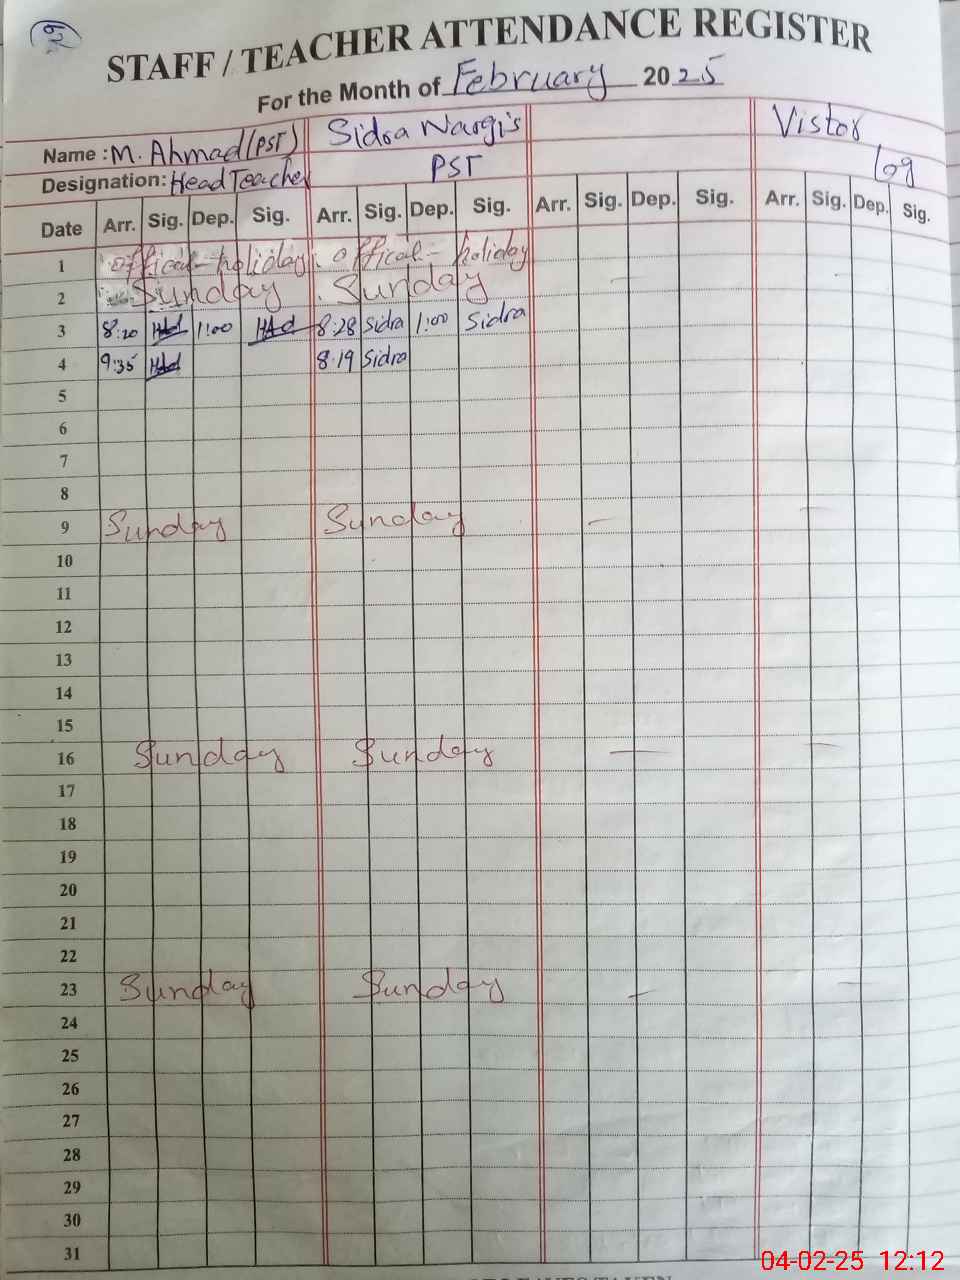 62
STAFF / TEACHER ATTENDANCE REGISTER
For the Month of February 2025
Name : M. Ahmad (PST) Sidra Nargis Vistor
Designation: Head Teacher PST log
Date Arr. Sig. Dep. Sig. Arr. Sig. Dep. Sig. Arr. Sig. Dep. Sig. Arr. Sig. Dep. Sig.
1 offical - holiday. offical - holiday
2 Sunday . Sunday
3 8:20 1:00 8:28 Sidra 1:00 Sidra
4 9:35 8:19 Sidra
5
6
7
8
9 Sunday Sunday — —
10
11
12
13
14
15
16 Sunday Sunday — —
17
18
19
20
21
22
23 Sunday Sunday — —
24
25
26
27
28
29
30
31
04-02-25 12:12